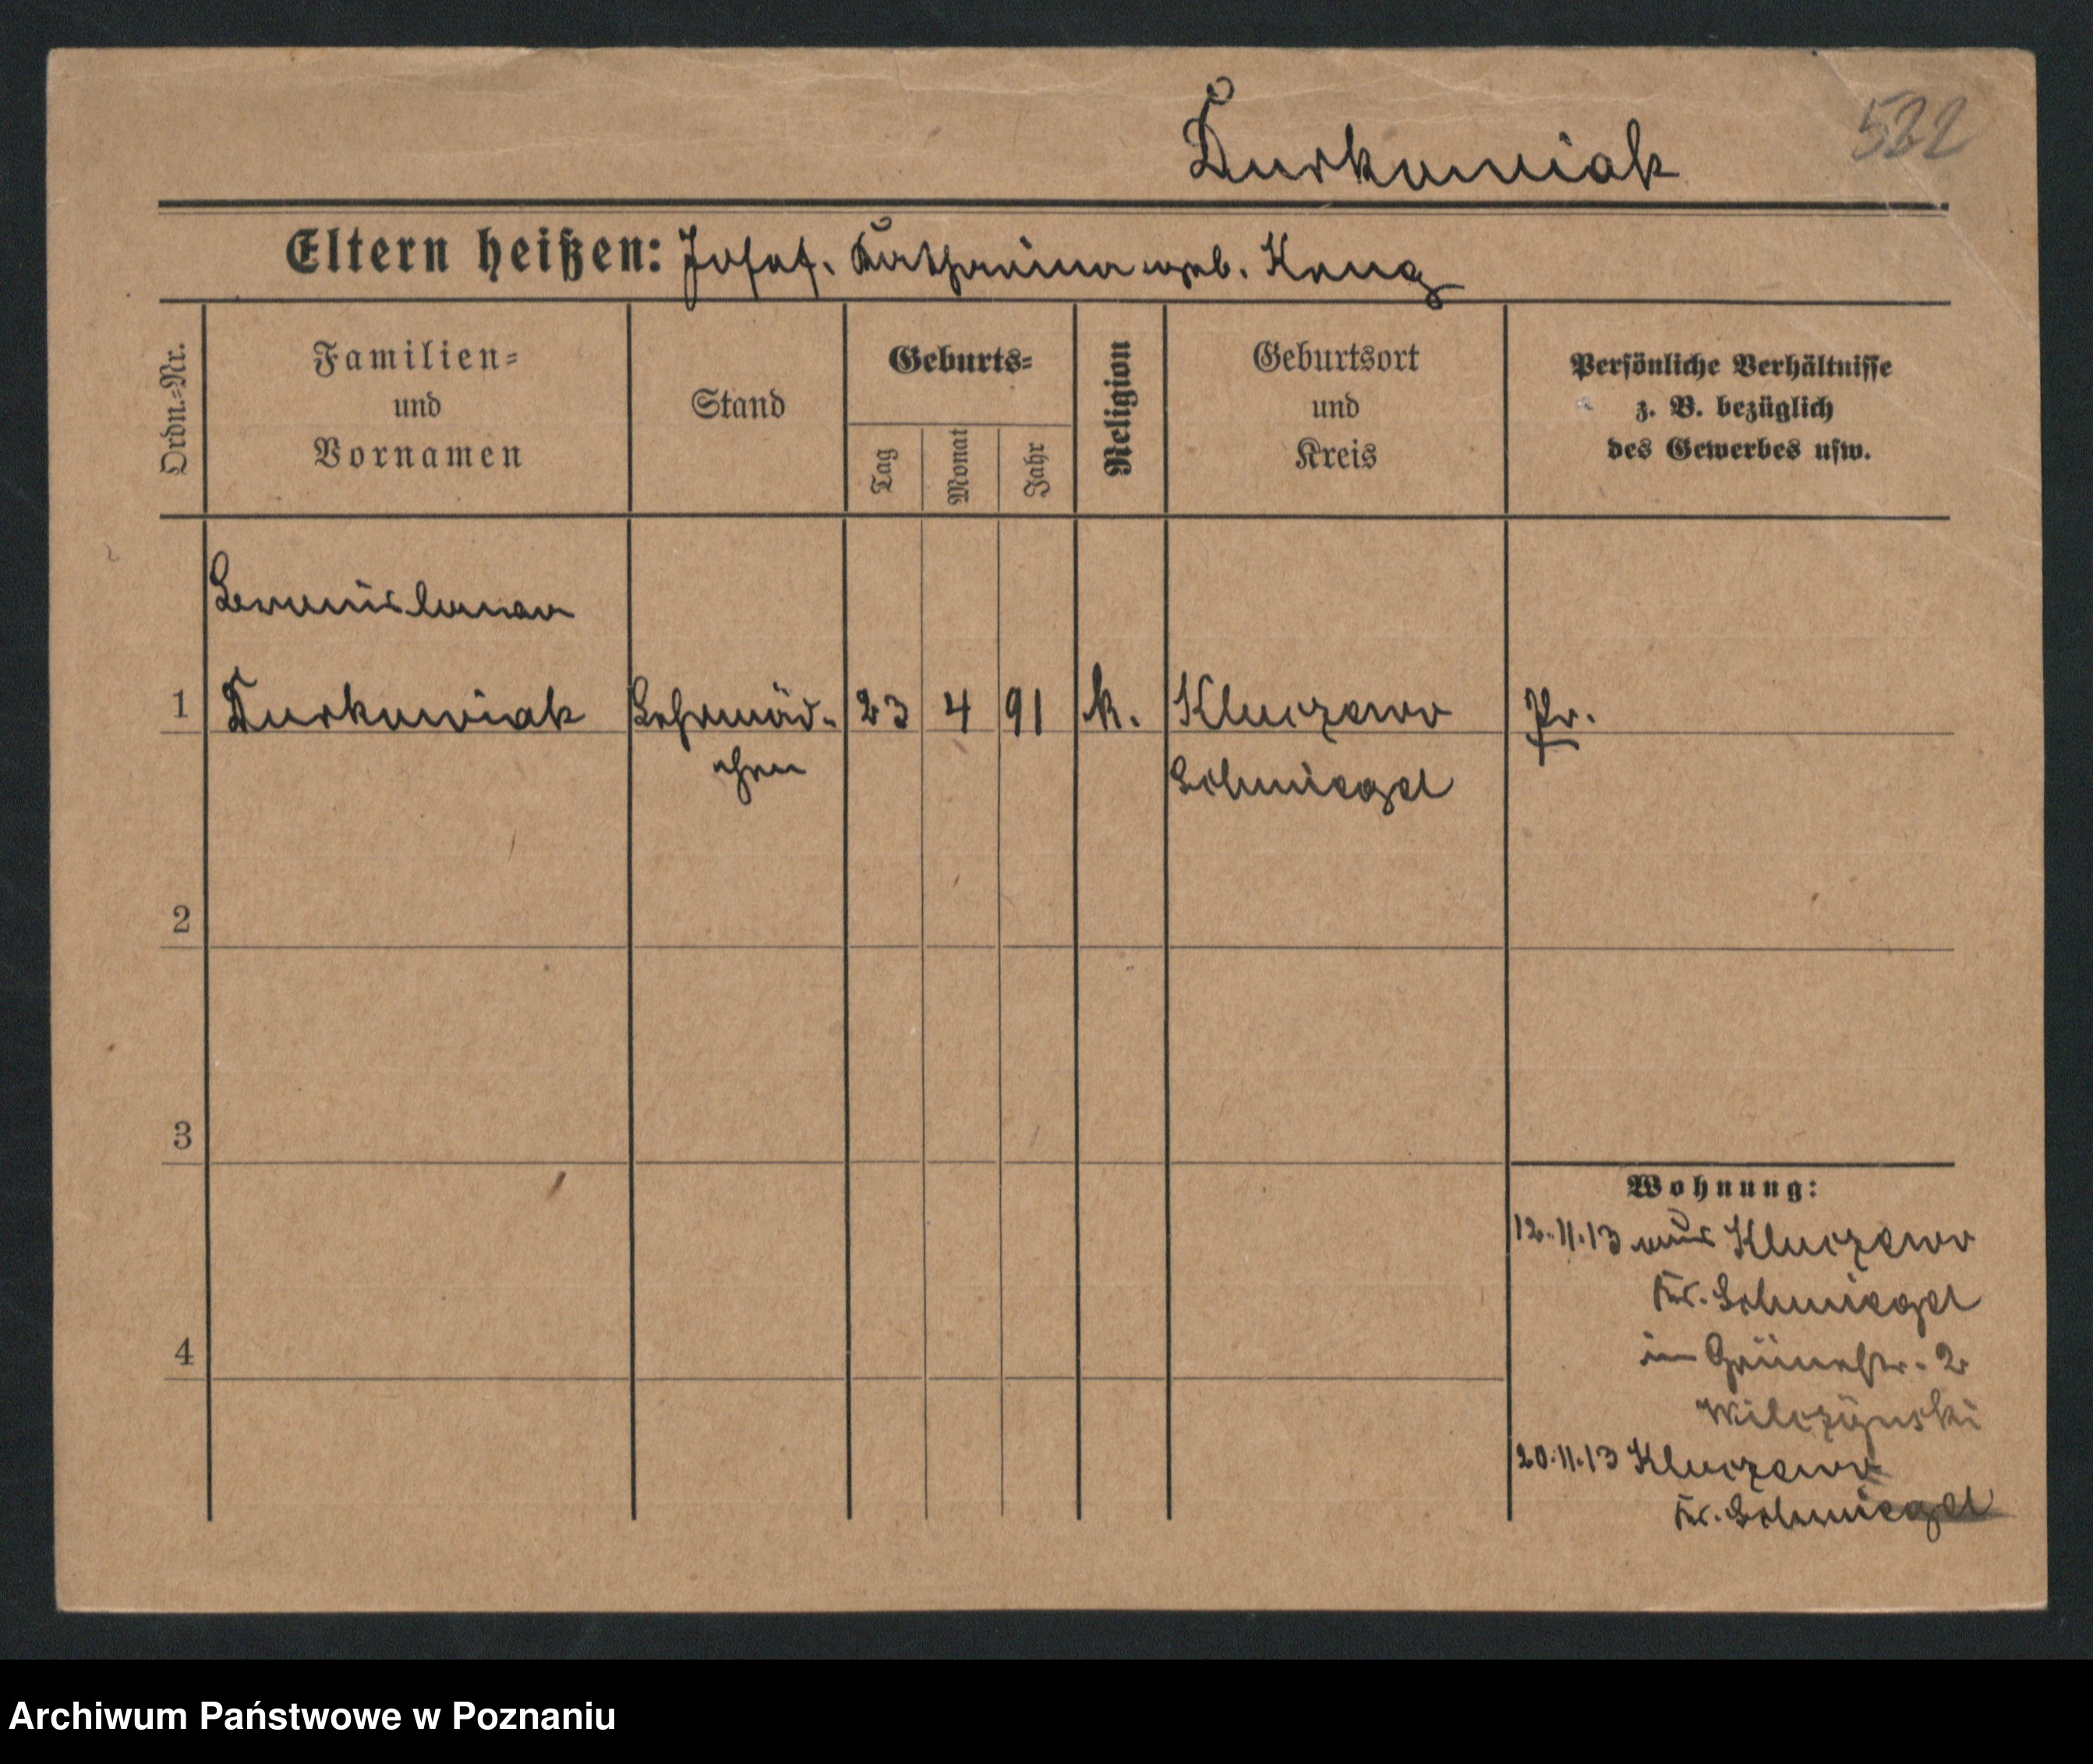 Kurkowiak
522
Eltern heißen: Josef. Katharina geb.
Ordn.-Nr.
Familien-
und
Vornamen
Stand
Geburts-
Tag
Monat
Jahr
Religion
Geburtsort
und
Kreis
Persönliche Verhältnisse
z. B. bezüglich
des Gewerbes usw.
1
Kurkowiak
Lehrmäd-
chen
23
4
91
k.
Kluczewo
Schmiegel
Pr.
2
3
4
Wohnung:
12.11.13 aus Kluczewo
Kr. Schmiegel
in Grünestr. 2
Wilczyński
20.11.13 Kluczewo
Kr. Schmiegel
Archiwum Państwowe w Poznaniu